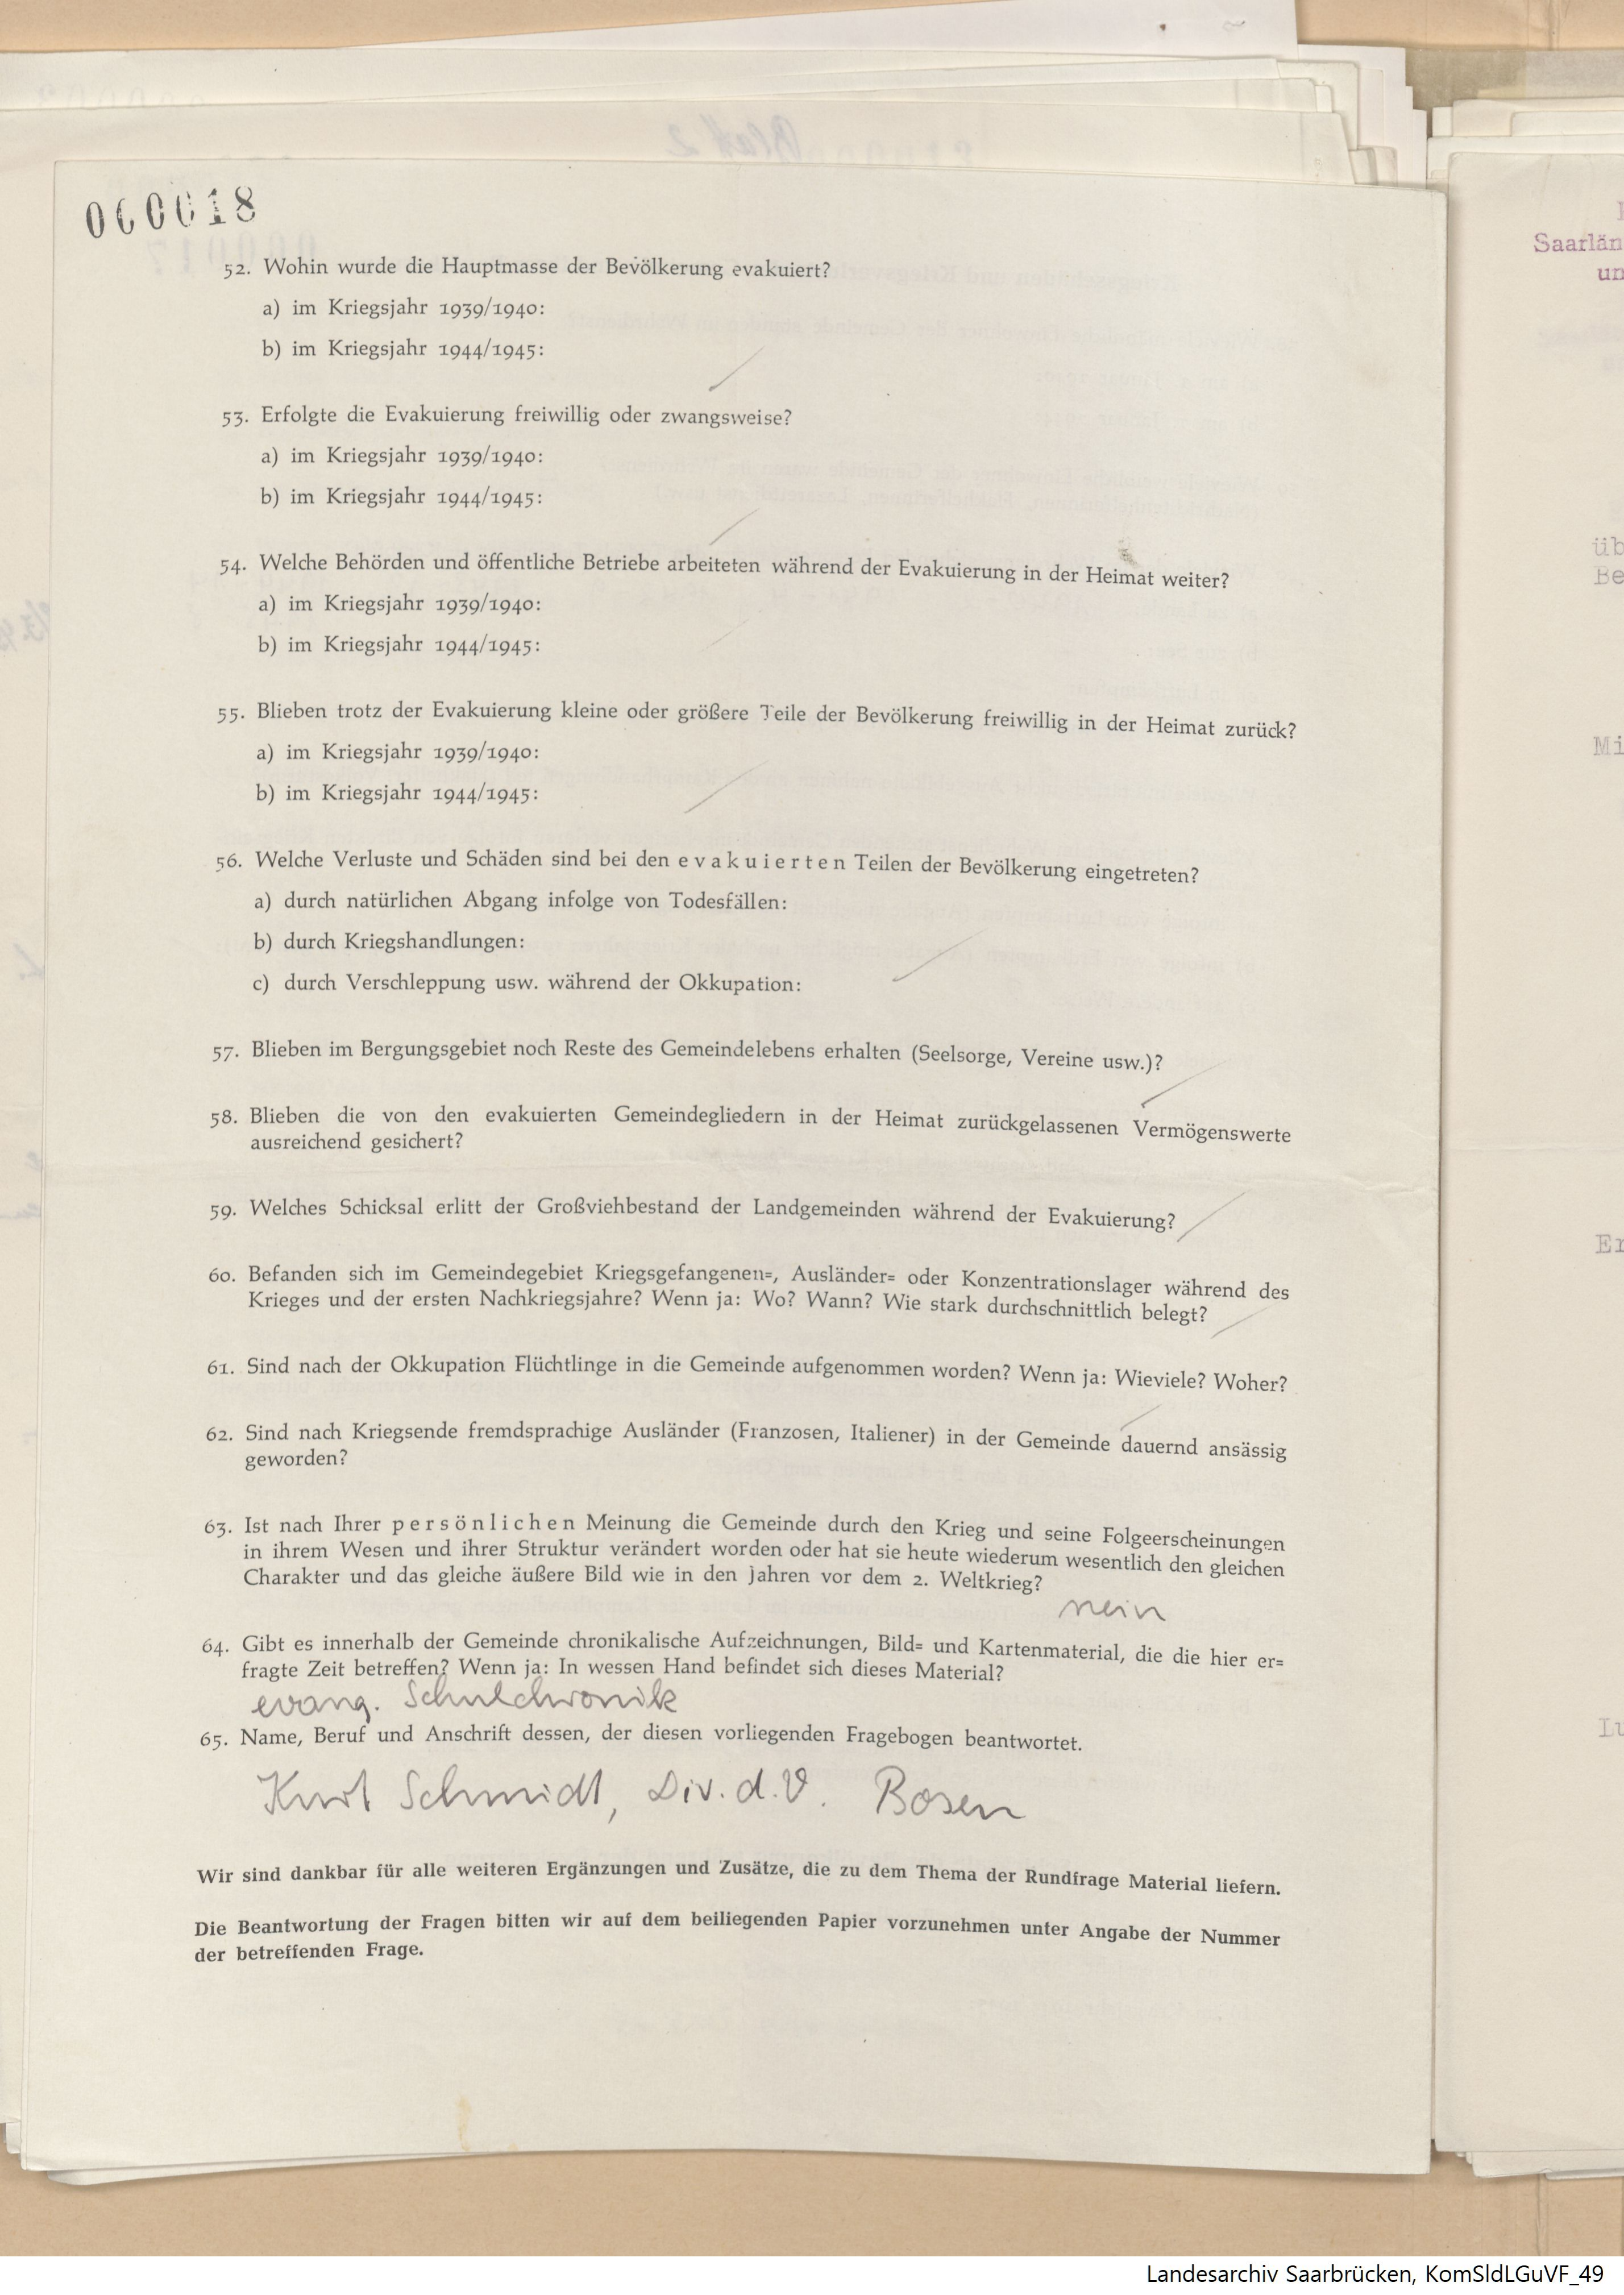 000018
52. Wohin wurde die Hauptmasse der Bevölkerung evakuiert?
a) im Kriegsjahr 1939/1940:
b) im Kriegsjahr 1944/1945:
53. Erfolgte die Evakuierung freiwillig oder zwangsweise?
a) im Kriegsjahr 1939/1940:
b) im Kriegsjahr 1944/1945:
54. Welche Behörden und öffentliche Betriebe arbeiteten während der Evakuierung in der Heimat weiter?
a) im Kriegsjahr 1939/1940:
b) im Kriegsjahr 1944/1945:
55. Blieben trotz der Evakuierung kleine oder größere Teile der Bevölkerung freiwillig in der Heimat zurück?
a) im Kriegsjahr 1939/1940:
b) im Kriegsjahr 1944/1945:
56. Welche Verluste und Schäden sind bei den evakuierten Teilen der Bevölkerung eingetreten?
a) durch natürlichen Abgang infolge von Todesfällen:
b) durch Kriegshandlungen:
c) durch Verschleppung usw. während der Okkupation:
57. Blieben im Bergungsgebiet noch Reste des Gemeindelebens erhalten (Seelsorge, Vereine usw.)?
58. Blieben die von den evakuierten Gemeindegliedern in der Heimat zurückgelassenen Vermögenswerte
ausreichend gesichert?
59. Welches Schicksal erlitt der Großviehbestand der Landgemeinden während der Evakuierung?
60. Befanden sich im Gemeindegebiet Kriegsgefangenen=, Ausländer= oder Konzentrationslager während des
Krieges und der ersten Nachkriegsjahre? Wenn ja: Wo? Wann? Wie stark durchschnittlich belegt?
61. Sind nach der Okkupation Flüchtlinge in die Gemeinde aufgenommen worden? Wenn ja: Wieviele? Woher?
62. Sind nach Kriegsende fremdsprachige Ausländer (Franzosen, Italiener) in der Gemeinde dauernd ansässig
geworden?
63. Ist nach Ihrer persönlichen Meinung die Gemeinde durch den Krieg und seine Folgeerscheinungen
in ihrem Wesen und ihrer Struktur verändert worden oder hat sie heute wiederum wesentlich den gleichen
Charakter und das gleiche äußere Bild wie in den Jahren vor dem 2. Weltkrieg?
nein
64. Gibt es innerhalb der Gemeinde chronikalische Aufzeichnungen, Bild= und Kartenmaterial, die die hier er=
fragte Zeit betreffen? Wenn ja: In wessen Hand befindet sich dieses Material?
evang. Schulchronik
65. Name, Beruf und Anschrift dessen, der diesen vorliegenden Fragebogen beantwortet.
Kurt Schmidt, Div. d. V. Bosen
Wir sind dankbar für alle weiteren Ergänzungen und Zusätze, die zu dem Thema der Rundfrage Material liefern.
Die Beantwortung der Fragen bitten wir auf dem beiliegenden Papier vorzunehmen unter Angabe der Nummer
der betreffenden Frage.
Saarlän
un
üb
Be
Mi
Er
Lu
Landesarchiv Saarbrücken, KomSldLGuVF_49